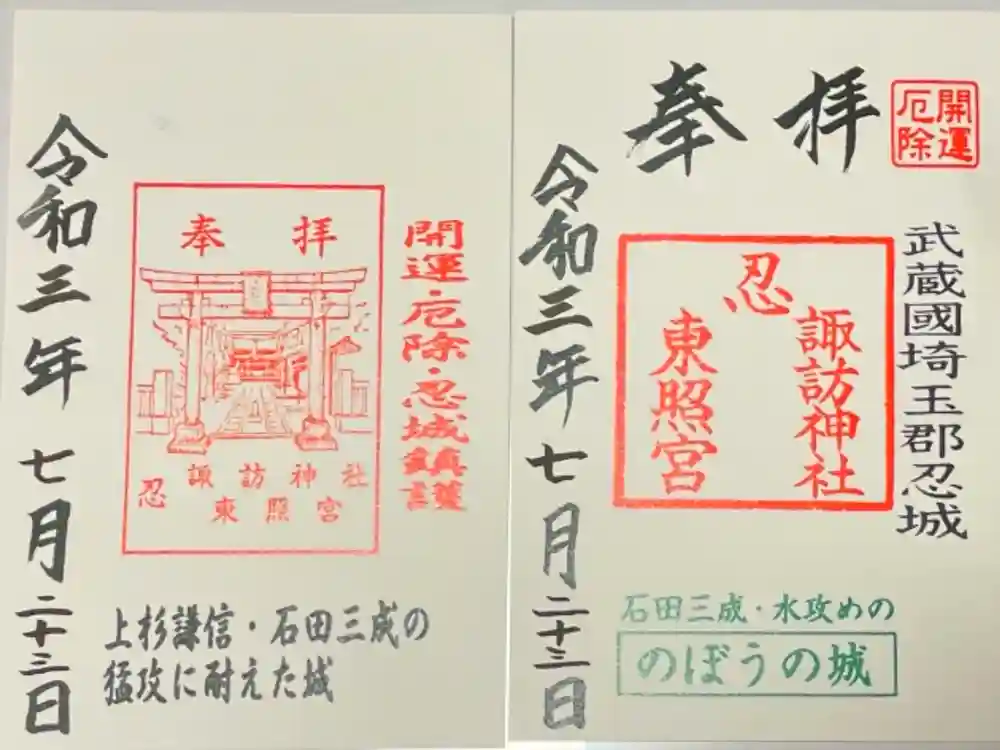 奉拝
開運・厄除・忍城鎮護
忍
諏訪神社
東照宮
上杉謙信・石田三成の
猛攻に耐えた城
令和三年 七月二十三日
開運
厄除
奉拝
武蔵國埼玉郡忍城
忍
諏訪神社
東照宮
石田三成・水攻めの
のぼうの城
令和三年 七月二十三日